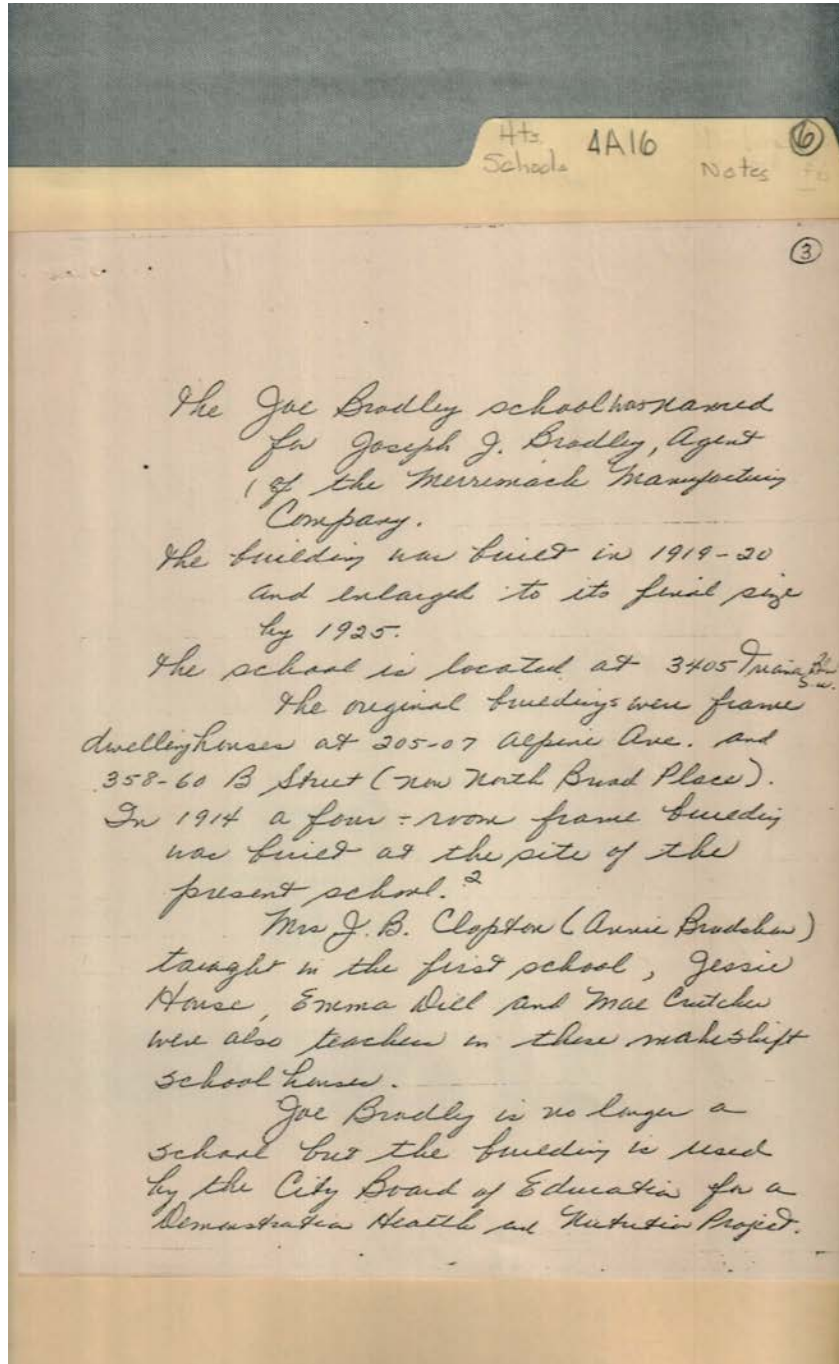 Hts. 4A16 6
Schools Notes
3
The Joe Bradley school was named
for Joseph J. Bradley, Agent
of the Merrimack Manufacturing
Company.
The building was built in 1919-20
and enlarged to its final size
by 1925.
The school is located at 3405 Triana Blvd
S.W.
The original buildings were frame
dwelling houses at 205-07 Alpine Ave. and
358-60 B Street (now North Broad Place).
In 1914 a four-room frame building
was built at the site of the
present school.2
Mrs J. B. Clopton (Annie Bradshaw)
taught in the first school, Jessie
House, Emma Dill and Mae Crutcher
were also teachers in these makeshift
school houses.
Joe Bradley is no longer a
school but the building is used
by the City Board of Education for a
Demonstration Health and Nutrition Project.